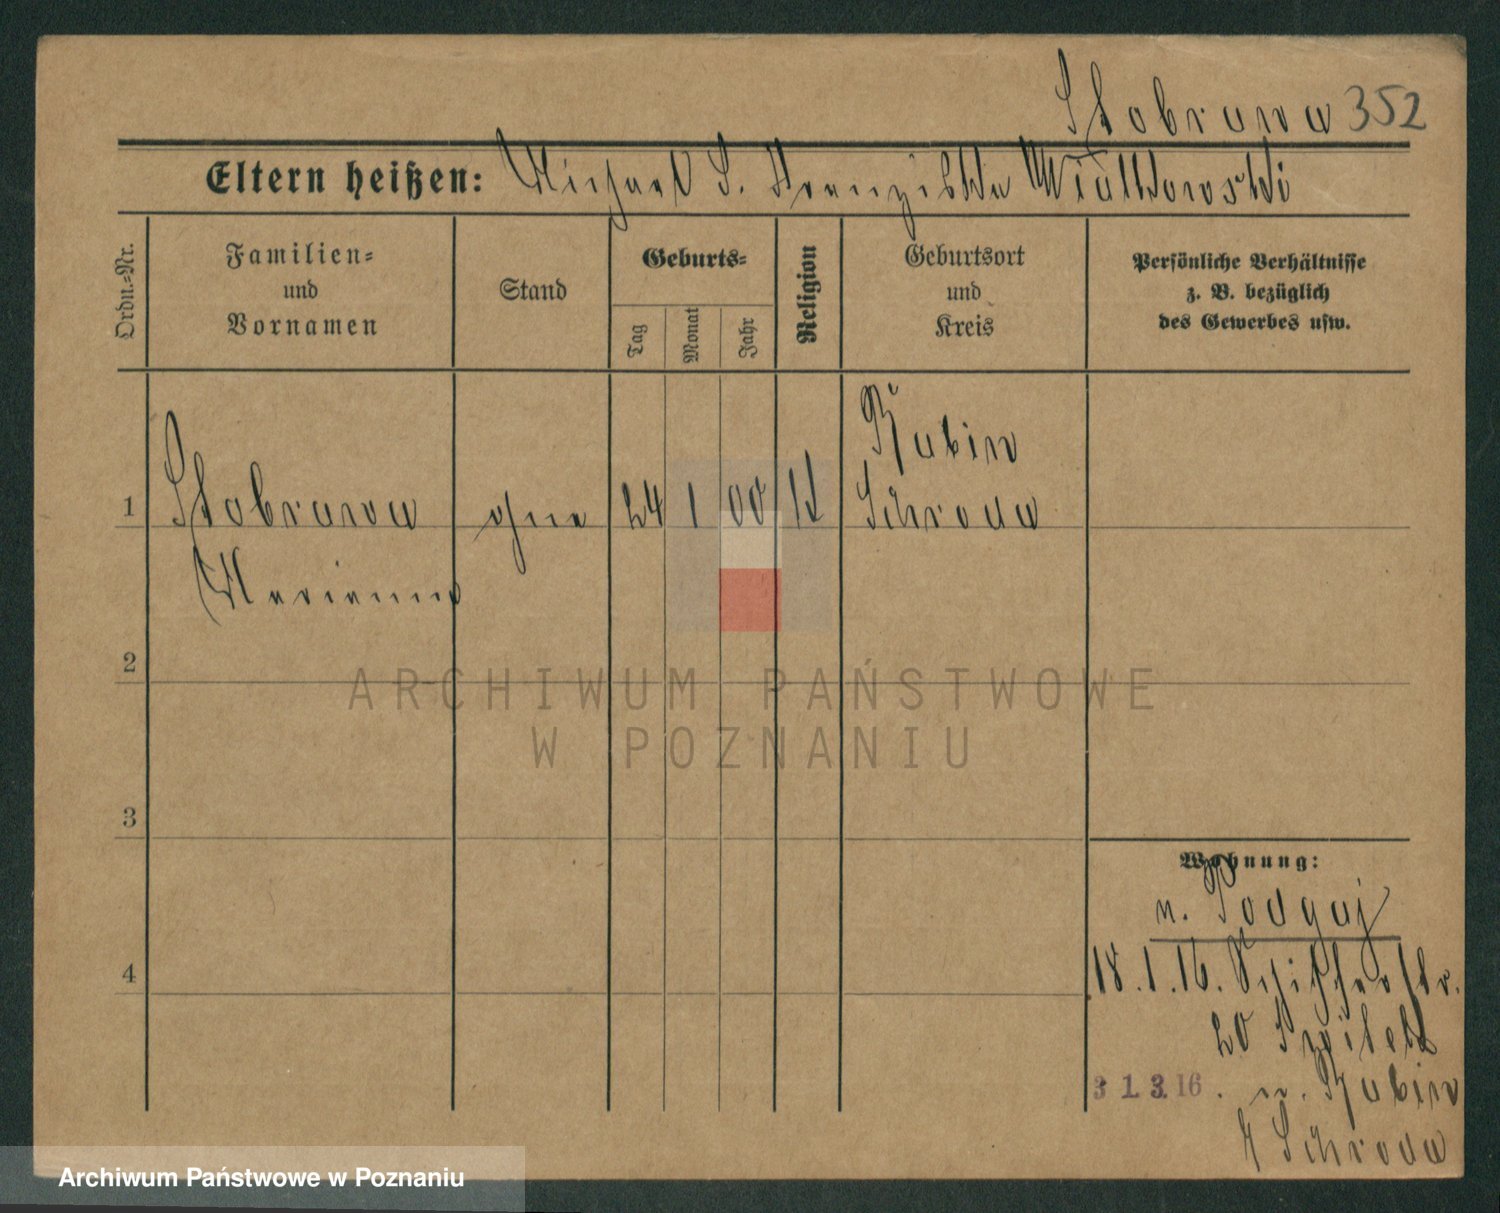 Stobrawa 352
Eltern heißen: Michael S. Franziska Wialkowski
Ordn.-Nr.
Familien-
und
Vornamen
Stand
Geburts-
Tag
Monat
Jahr
Religion
Geburtsort
und
Kreis
Persönliche Verhältnisse
z. B. bezüglich
des Gewerbes usw.
Rubin
1 Stobrawa ohne 24 1 00 Schroda
Marianna
2
ARCHIWUM PAŃSTWOWE
W POZNANIU
3
Wohnung:
n. Podgaj
18.1.16. Schifferstr.
20
31.3.16. n. Rubin
Schroda
4
Archiwum Państwowe w Poznaniu